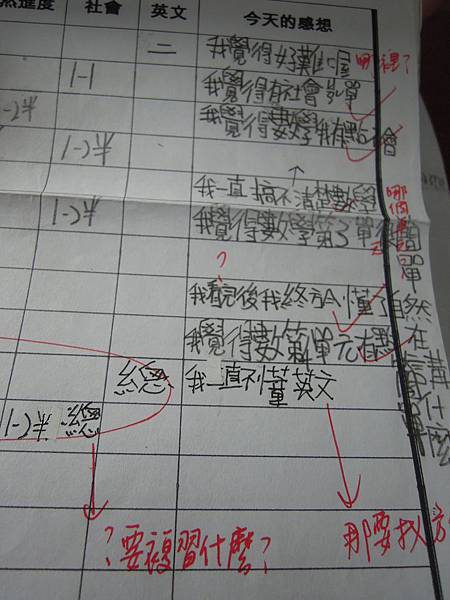 進度 社會 英文 今天的感想
二 我覺得好難 哪裡?
1-1 我覺得有社會
1-2半 我覺得數學我有點不會
1-2半
我一直搞不清楚數學 哪個單元
1-2半 我覺得數學第3單很簡單
?
我看完後我終於懂了自然在講什麼
我覺得數第4單元很簡單
總 我一直不懂英文
1-2半 總
?要複習什麼? 那要找